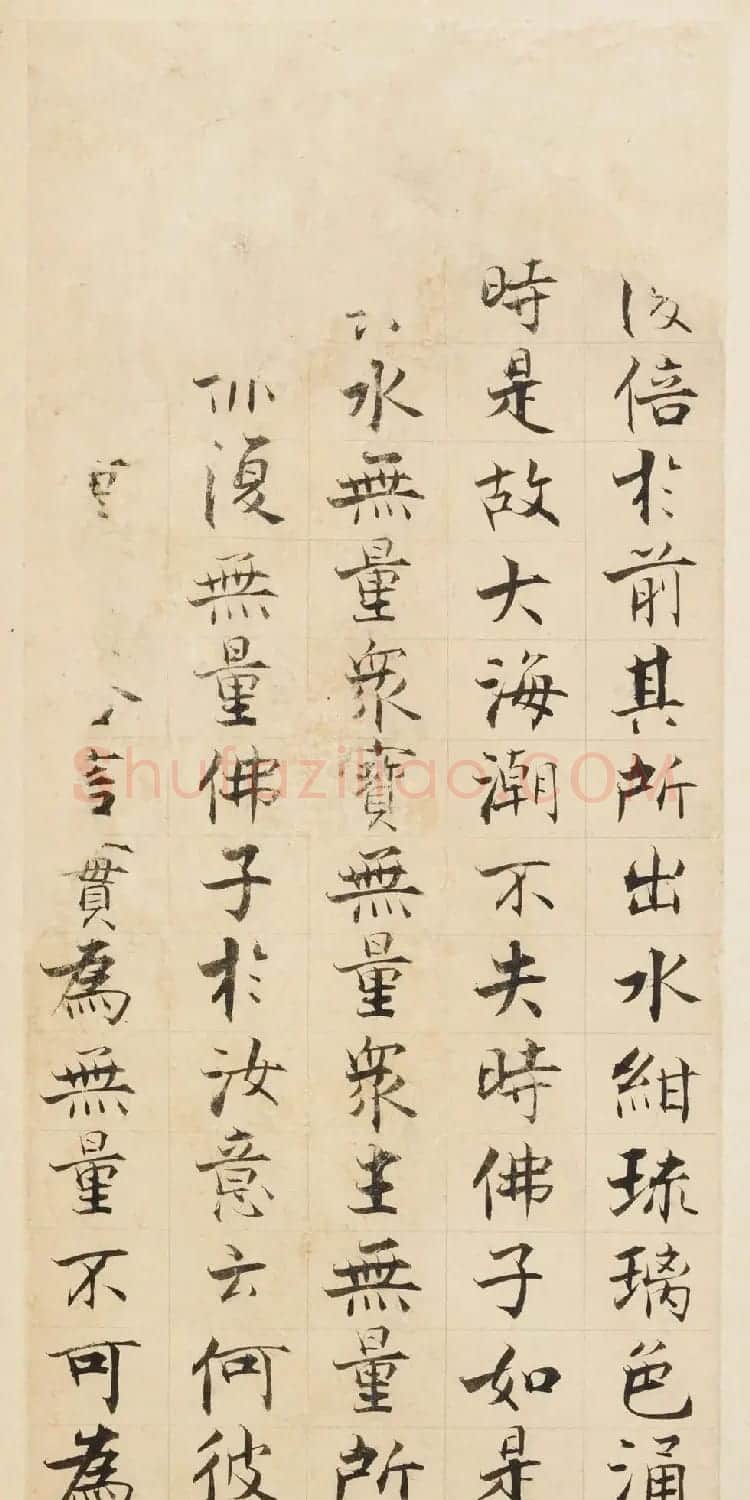 倍於前其所出水紺琉璃色涌
時是故大海潮不失時佛子如是
水無量衆寶無量衆生無量所
復無量佛子於汝意云何彼
言實為無量不可為
Shufaziliao.COM